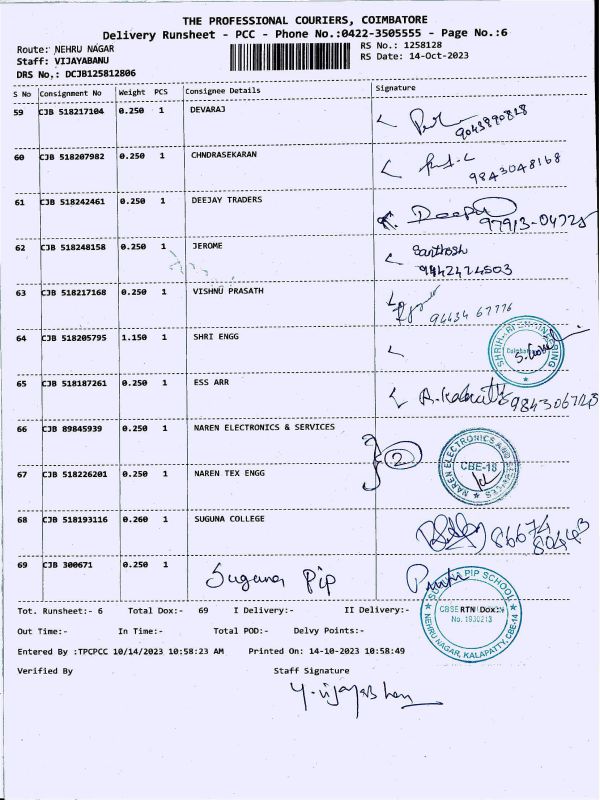 THE PROFESSIONAL COURIERS, COIMBATORE
Delivery Runsheet - PCC - Phone No.:0422-3505555 - Page No.:6
Route: NEHRU NAGAR RS No.: 1258128
Staff: VIJAYABANU RS Date: 14-Oct-2023
DRS No.: DCJB125812806
S No Consignment No Weight PCS Consignee Details Signature
59 CJB 518217104 0.250 1 DEVARAJ
9043890828
60 CJB 518207982 0.250 1 CHNDRASEKARAN
9843048168
61 CJB 518242461 0.250 1 DEEJAY TRADERS Deepu
97913-04725
62 CJB 518248158 0.250 1 JEROME Santhosh
9442424503
63 CJB 518217168 0.250 1 VISHNU PRASATH
94434 67776
64 CJB 518205795 1.150 1 SHRI ENGG
65 CJB 518187261 0.250 1 ESS ARR
66 CJB 89845939 0.250 1 NAREN ELECTRONICS & SERVICES
2 NAREN ELECTRONICS AND SERVICES CBE-18
67 CJB 518226201 0.250 1 NAREN TEX ENGG
68 CJB 518193116 0.260 1 SUGUNA COLLEGE
86674
80443
69 CJB 300671 0.250 1 Suguna Pip
SUGUNA PIP SCHOOL
Tot. Runsheet:- 6 Total Dox:- 69 I Delivery:- II Delivery:- RTN Dox:-
No. 1930213
NEHRU NAGAR, KALAPATTY, CBE-14
Out Time:- In Time:- Total POD:- Delvy Points:-
Entered By :TPCPCC 10/14/2023 10:58:23 AM Printed On: 14-10-2023 10:58:49
Verified By Staff Signature
Y. Vijayabhanu